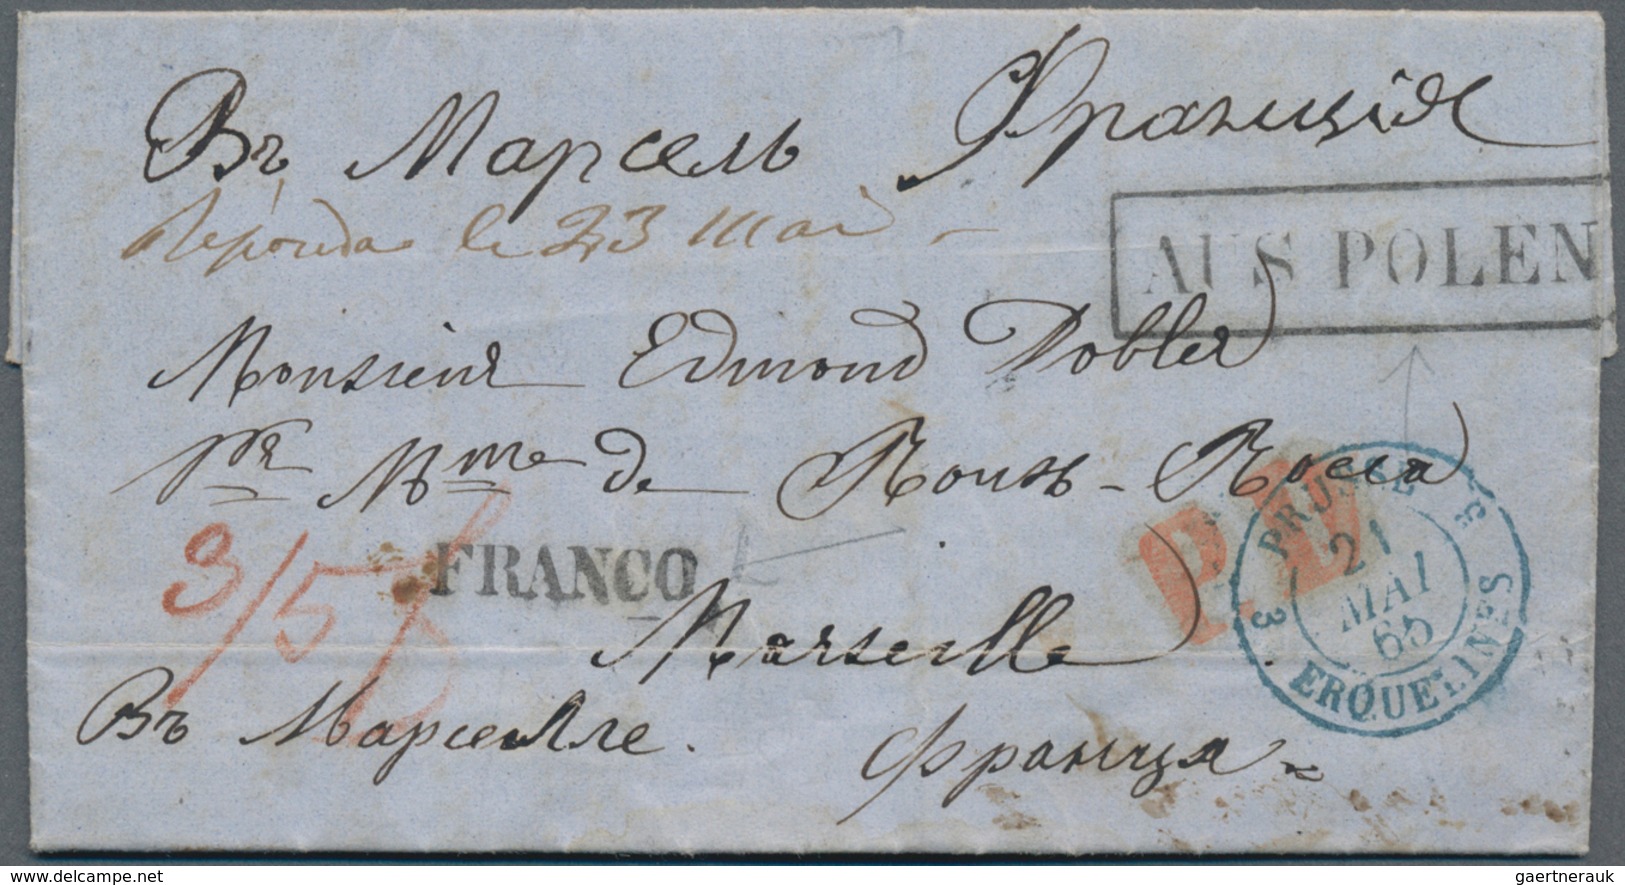 Въ Марсель Франція
Réponda le 23 Mai
AUS POLEN
Monsieur Edmond Dobler
pr Mme de Roux-Rocca
3/5
FRANCO
P.D.
PRUSSE 3
21
MAI
65
3 ERQUELINES
Marseille
Въ Марселле.
Францiя
delcampe.net
gaertnerauk